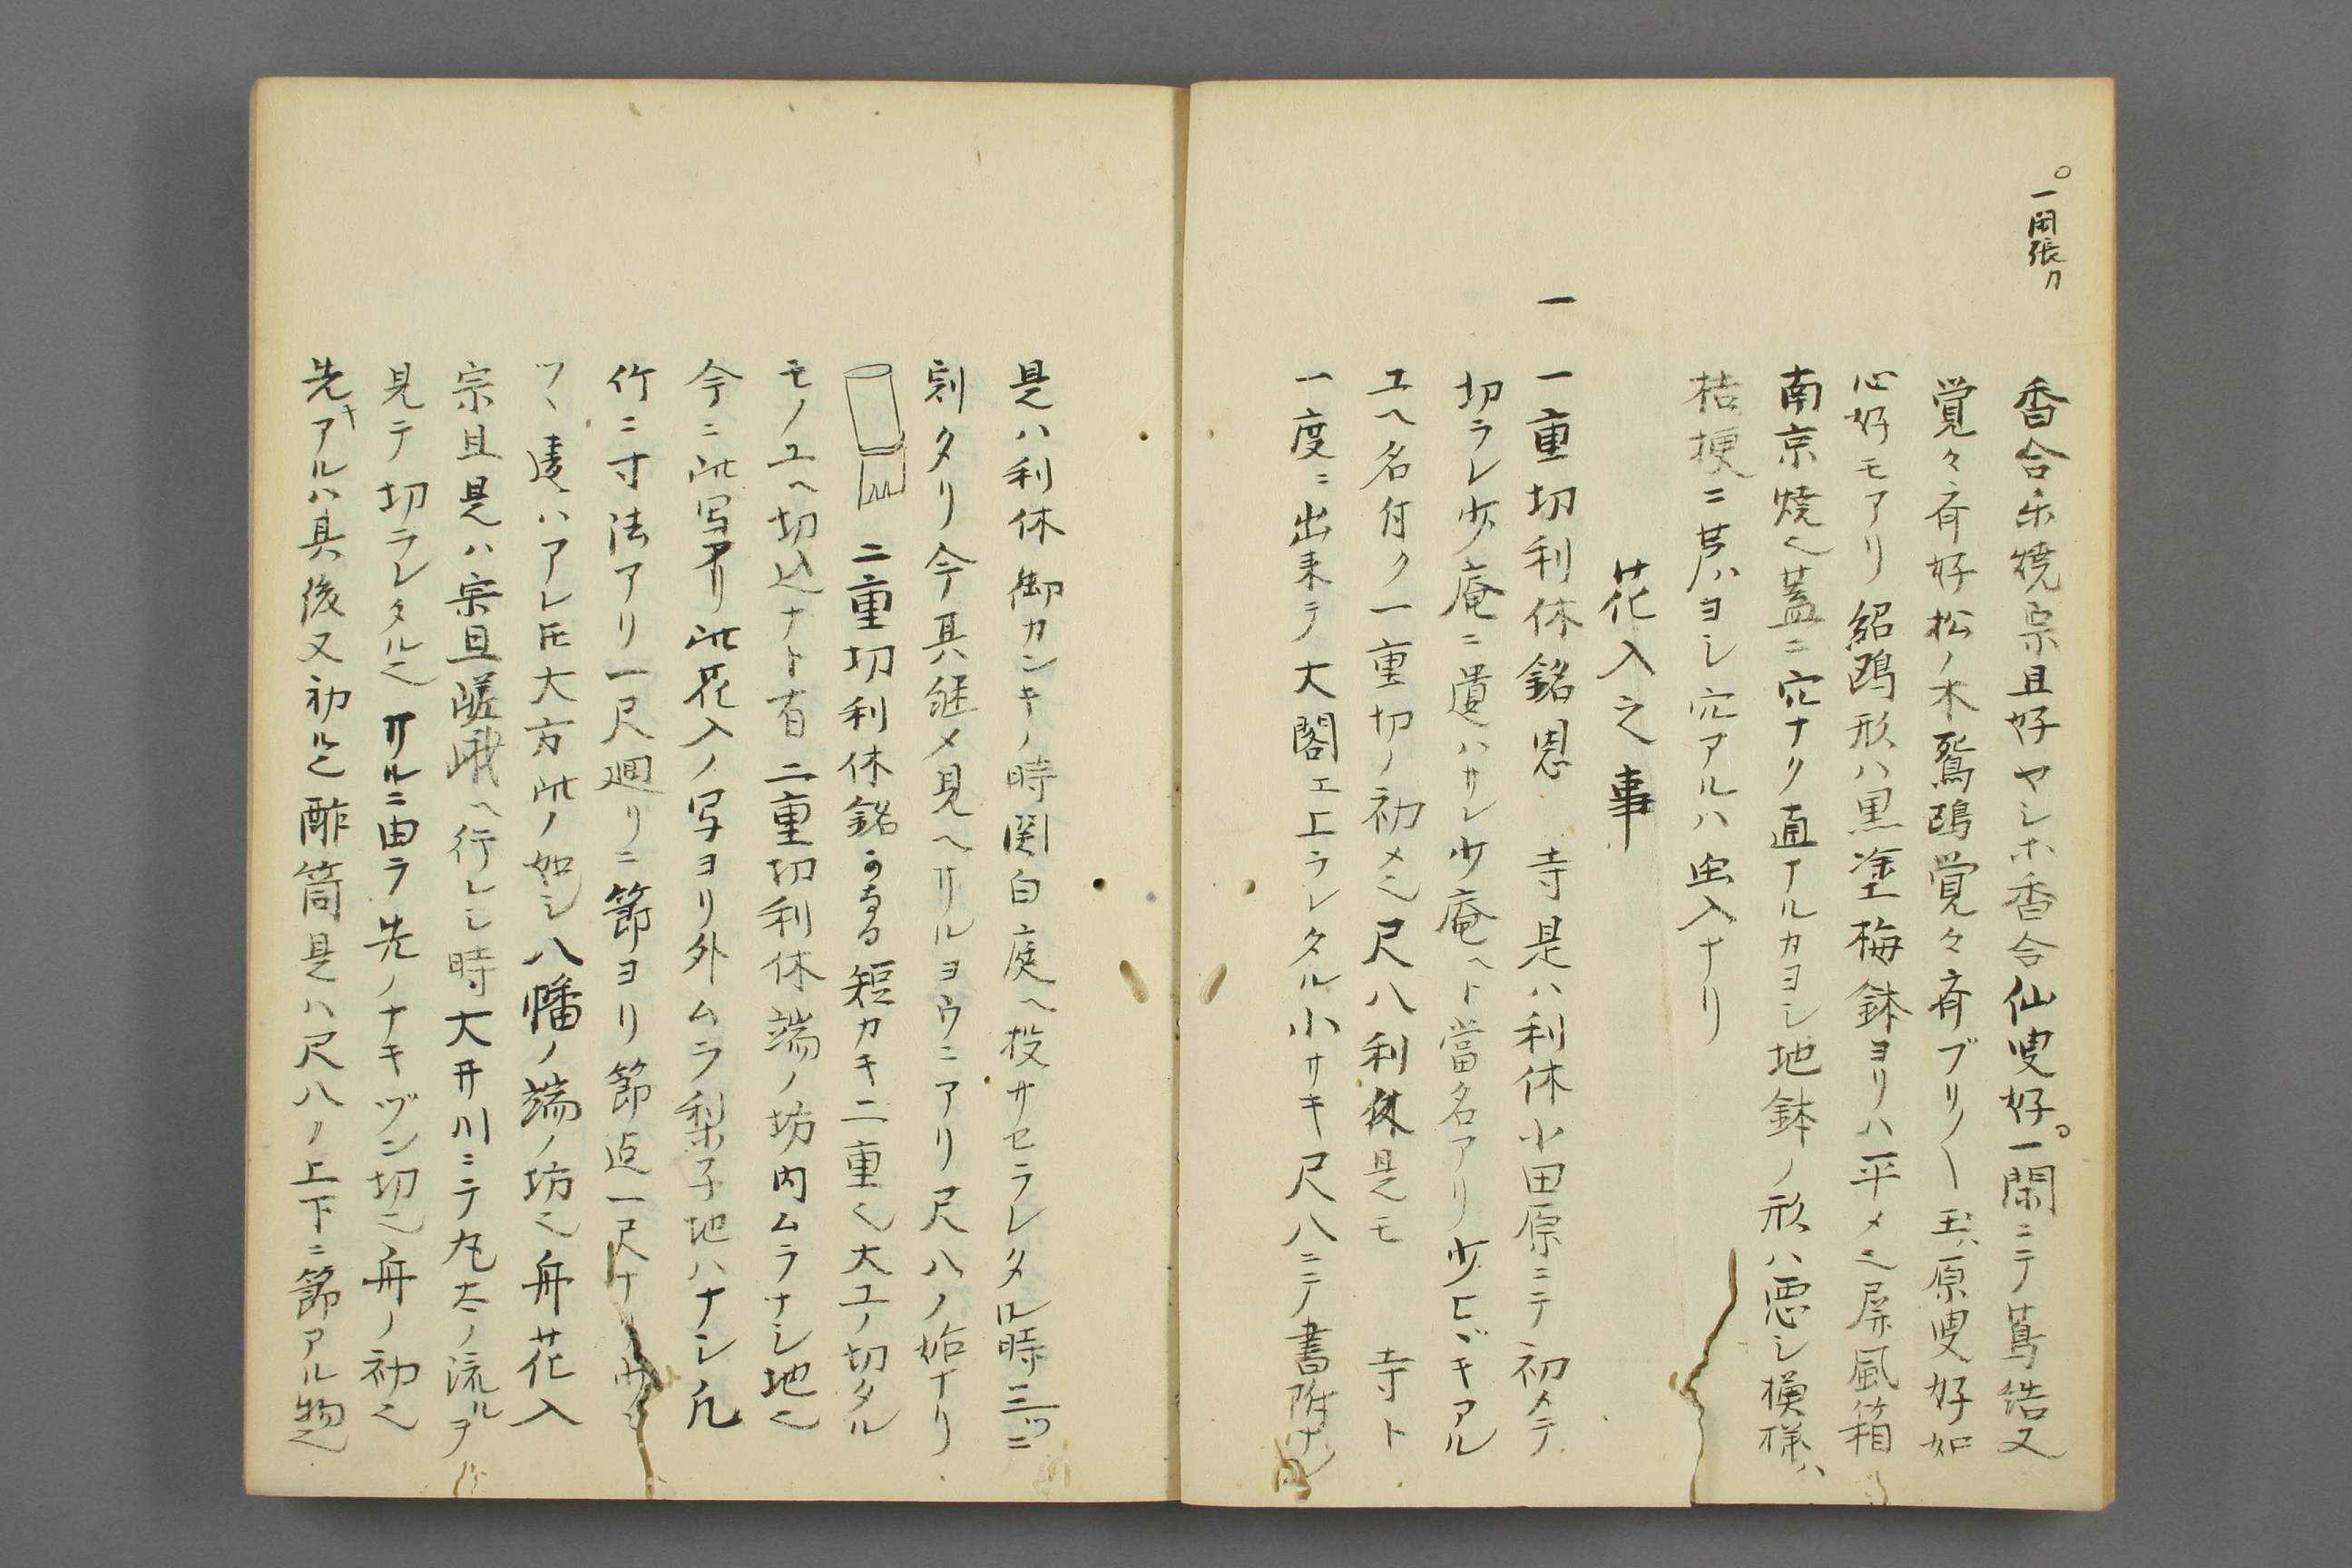 ○一閑張カ
香合楽焼宗旦好ヤシホ香合仙叟好○一閑ニテ蔦結又
覚々斉好松ノ木鴛鴎覚々斉ブリ〳〵玉ハ原叟好如
心好モアリ紹鴎形ハ黒塗梅鉢ヨリハ平メ也屏風箱
南京焼也蓋ニ穴ナク直ナルカヨシ地鉢ノ形ハ悪シ模様ハ
桔梗ニ芦ハヨシ穴アルハ虫入ナリ
花入之事
一 一重切利休銘恩 寺是ハ利休小田原ニテ初メテ
切ラレ少庵ニ遺ハサレ少庵ヘト當名アリ少ヒヾキアル
ユヘ名付ク一重切ノ初メ也尺八利休是モ 寺ト
一度ニ出来テ大閤エ上ラレタル小サキ尺八ニテ書附ナ
是ハ利休御カンキノ時関白庭ヘ投サセラレタル時三ツニ
割タリ今其継メ見ヘサルヨウニアリ尺八ノ始ナリ
二重切利休銘 短カキ二重也大ユノ切タル
モノユヘ切込ナト有二重切利休端ノ坊内ムラナシ地也
今ニ此写アリ此花入ノ写ヨリ外ムラ梨子地ハナシ凡
竹ニ寸法アリ一尺廻リニ節ヨリ節迠一尺ナリ
ツヽ違ハアレ𪜈大方此ノ如シ八幡ノ端ノ坊也舟花入
宗旦是ハ宗旦嵯峨ヘ行レシ時大井川ニテ丸太ノ流ルヲ
見テ切ラレタル也サルニ由ラ先ノナキヅン切也舟ノ初也
先キアルハ其後又初ル也酢筒是ハ尺八ノ上下ニ節アル物也